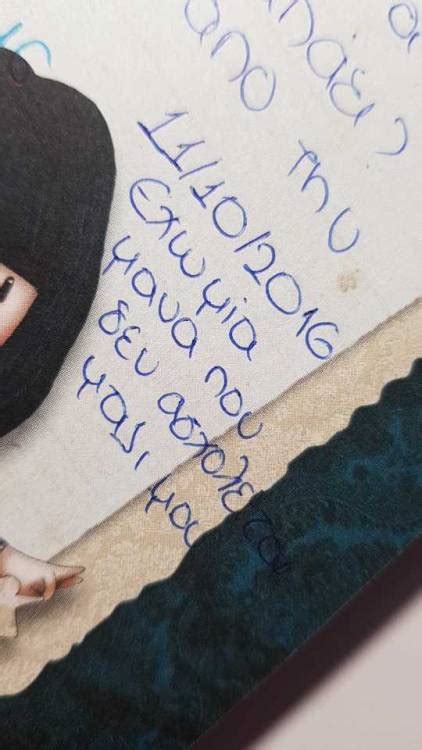 από την
11/10/2016
Εχω μία
μανα που
δεν ασχολεται
μαζι μου